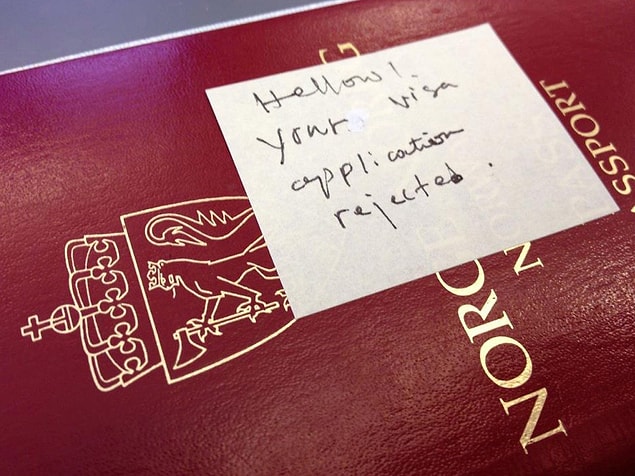 Hellow!
Your visa
application
rejected.
NORG
ASSPORT